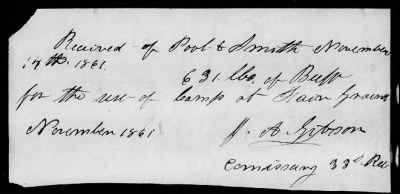 Received of Pool & Smith November
14th 1861.
631 lbs. of Beef
for the use of Camp at
November 1861
A. Gibson
Comissary 33d